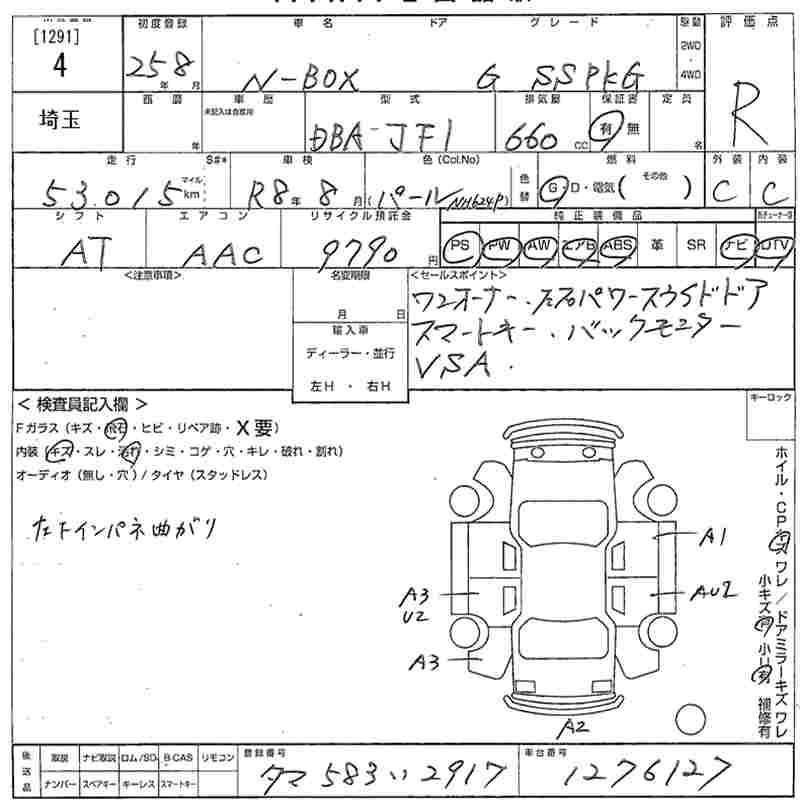 [1291]
4
初度登録 車名 ドア グレード 駆動 評価点
25年8月 N-BOX G SSPKG 2WD 4WD R
埼玉
車歴 型式 排気量 保証書 定員
未記入は自家用
年 DBA-JF1 660cc 有 無 名
走行 S#* 車検 色(Col.No) 色替 燃料 外装 内装
53,015 マイル km R8年8月 (パール NH624P) G・D・電気( その他 ) C C
シフト エアコン リサイクル預託金 純正装備品
AT AAC 9790円 PS PW AW エアB ABS 革 SR ナビ DTV
<注意事項> 名変期限 <セールスポイント>
月 日
輸入車
ディーラー・並行
左H ・ 右H
ワンオーナー・左右パワースライドドア
スマートキー・バックモニター
VSA.
＜ 検査員記入欄 ＞
キーロック
Fガラス (キズ・飛石・ヒビ・リペア跡・X要)
内装 (キズ・スレ・汚れ・シミ・コゲ・穴・キレ・破れ・割れ)
オーディオ (無し・穴) / タイヤ (スタッドレス)
左下インパネ曲がり
A1
A3
U2
AU2
A3
A2
ホイル・CPキズ ワレ / ドアミラーキズ ワレ
小キズ有 小凹有 補修有
後送品 取説 ナビ取説 ロム/SD B-CAS リモコン
ナンバー スペアキー キーレス スマートキー
登録番号 車台番号
タマ 583 い 2917 1276127